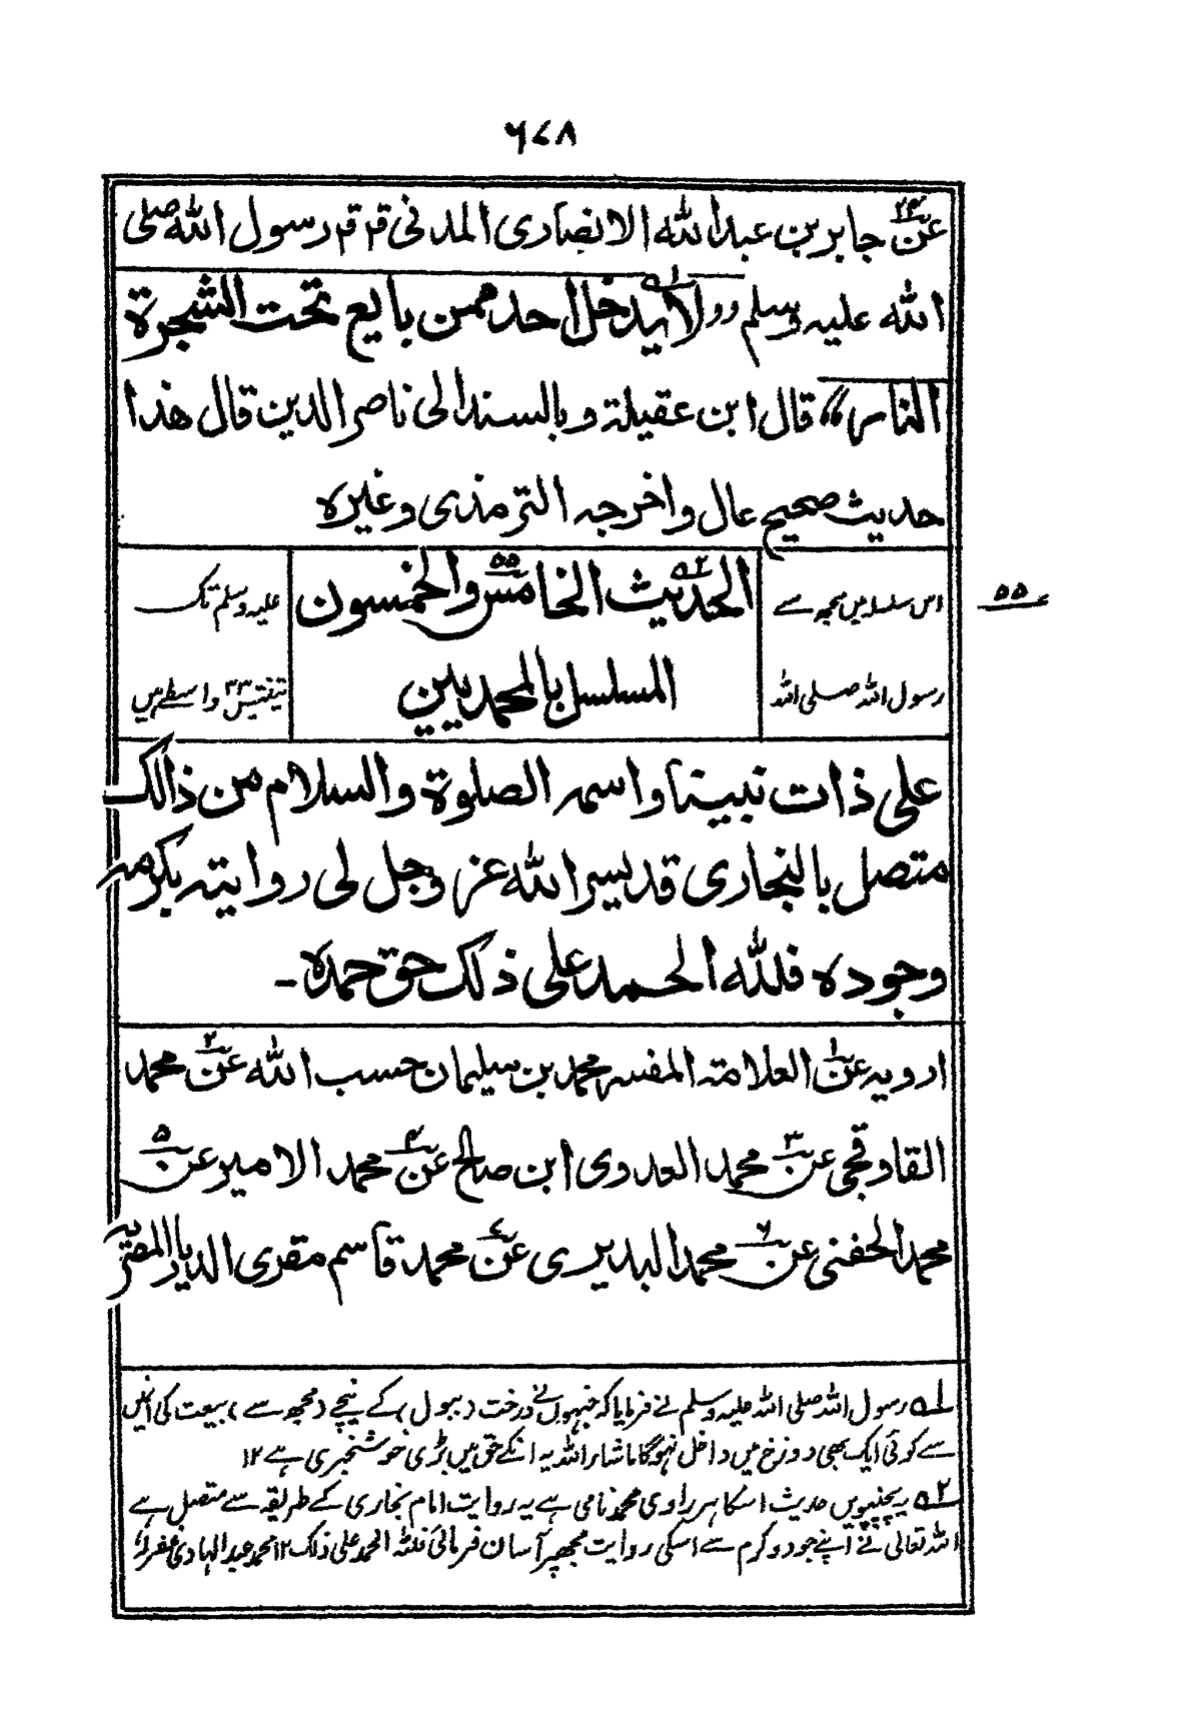 ۶۷۸
عن۲۴ جابر بن عبد الله الانصاری المدنی قر قر رسول الله صلی
الله علیہ وسلم ,, لا یدخل احد ممن بایع تحت الشجرة
النار ،، قال ابن عقیلۃ و بالسند الی ناصر الدین قال ھذا
حدیث صحیح عال و اخرجہ الترمذی وغیرہ
اس سلسلہ میں مجھ سے
رسول اللہ صلی اللہ
الحدیث الخامس والخمسون ۵۵
المسلسل بالمحمدیین
علیہ وسلم تک
تینتیس ۳۳ واسطے ہیں
۵۵
علی ذات نبینا واسمہ الصلوة والسلام من ذالک
متصل بالبخاری قد یسر اللہ عز وجل لی روایتہ بکرمہ
وجودہ فللہ الحمد علی ذلک حق حمدہ ۔
ارویہ عن۱ العلامۃ المفسر محمد بن سلیمان حسب اللہ عن۲ محمد
القاوقجی عن۳ محمد العدوی ابن صالح عن۴ محمد الامیر عن۵
محمد الحفنی عن۶ محمد البدیری عن۷ محمد قاسم مقری الدیار المصریہ
۱ـہ رسول اللہ صلی اللہ علیہ وسلم نے فرمایا کہ جنہوں نے درخت (ببول) کے نیچے (مجھ سے) بیعت کی انمیں
سے کوئی ایک بھی دوزخ میں داخل نہوگا ماشاء اللہ یہ انکے حق میں بڑی خوشخبری ہے ۱۲
۲ـہ پچپنویں حدیث اسکا ہر راوی محمد نامی ہے یہ روایت امام بخاری کے طریقہ سے متصل ہے
اللہ تعالی نے اپنے جود و کرم سے اسکی روایت مجھپر آسان فرمائی فللہ الحمد علی ذلک ۱۲ محمد عبد الہادی غفرلہ